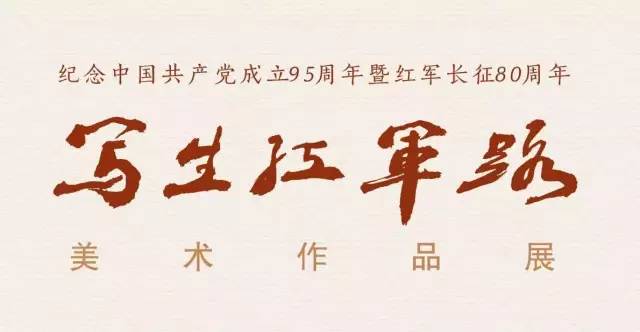 纪念中国共产党成立95周年暨红军长征80周年
写生红軍路
美术作品展